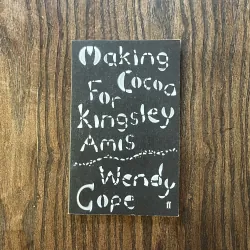 Making
Cocoa
For
Kingsley
Amis
Wendy
Cope
ff